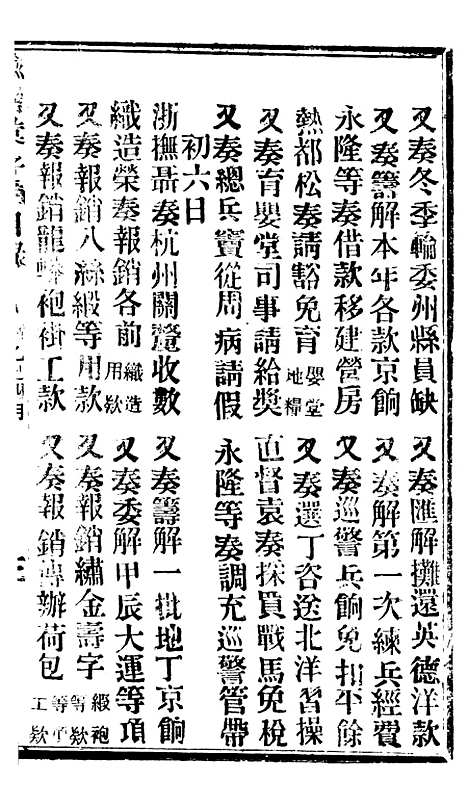 又奏冬季輪委州縣員缺 又奏匯解攤還英德洋款
又奏籌解本年各款京餉 又奏解第一次練兵經費
永隆等奏借款移建營房 又奏巡警兵餉免扣平餘
熱都松奏請豁免育嬰堂地糧 又奏選丁咨送北洋習操
又奏育嬰堂司事請給獎 直督袁奏採買戰馬免稅
又奏總兵竇從周病請假 永隆等奏調充巡警管帶
初六日
浙撫聶奏杭州關收數 又奏籌解一批地丁京餉
織造榮奏報銷各前織造用欵 又奏委解甲辰大運等項
又奏報銷八絲緞等用款 又奏報銷繡金壽字緞袍等欵
又奏報銷龍蟒袍褂工款 又奏報銷傳辦荷包等件工欵
目錄